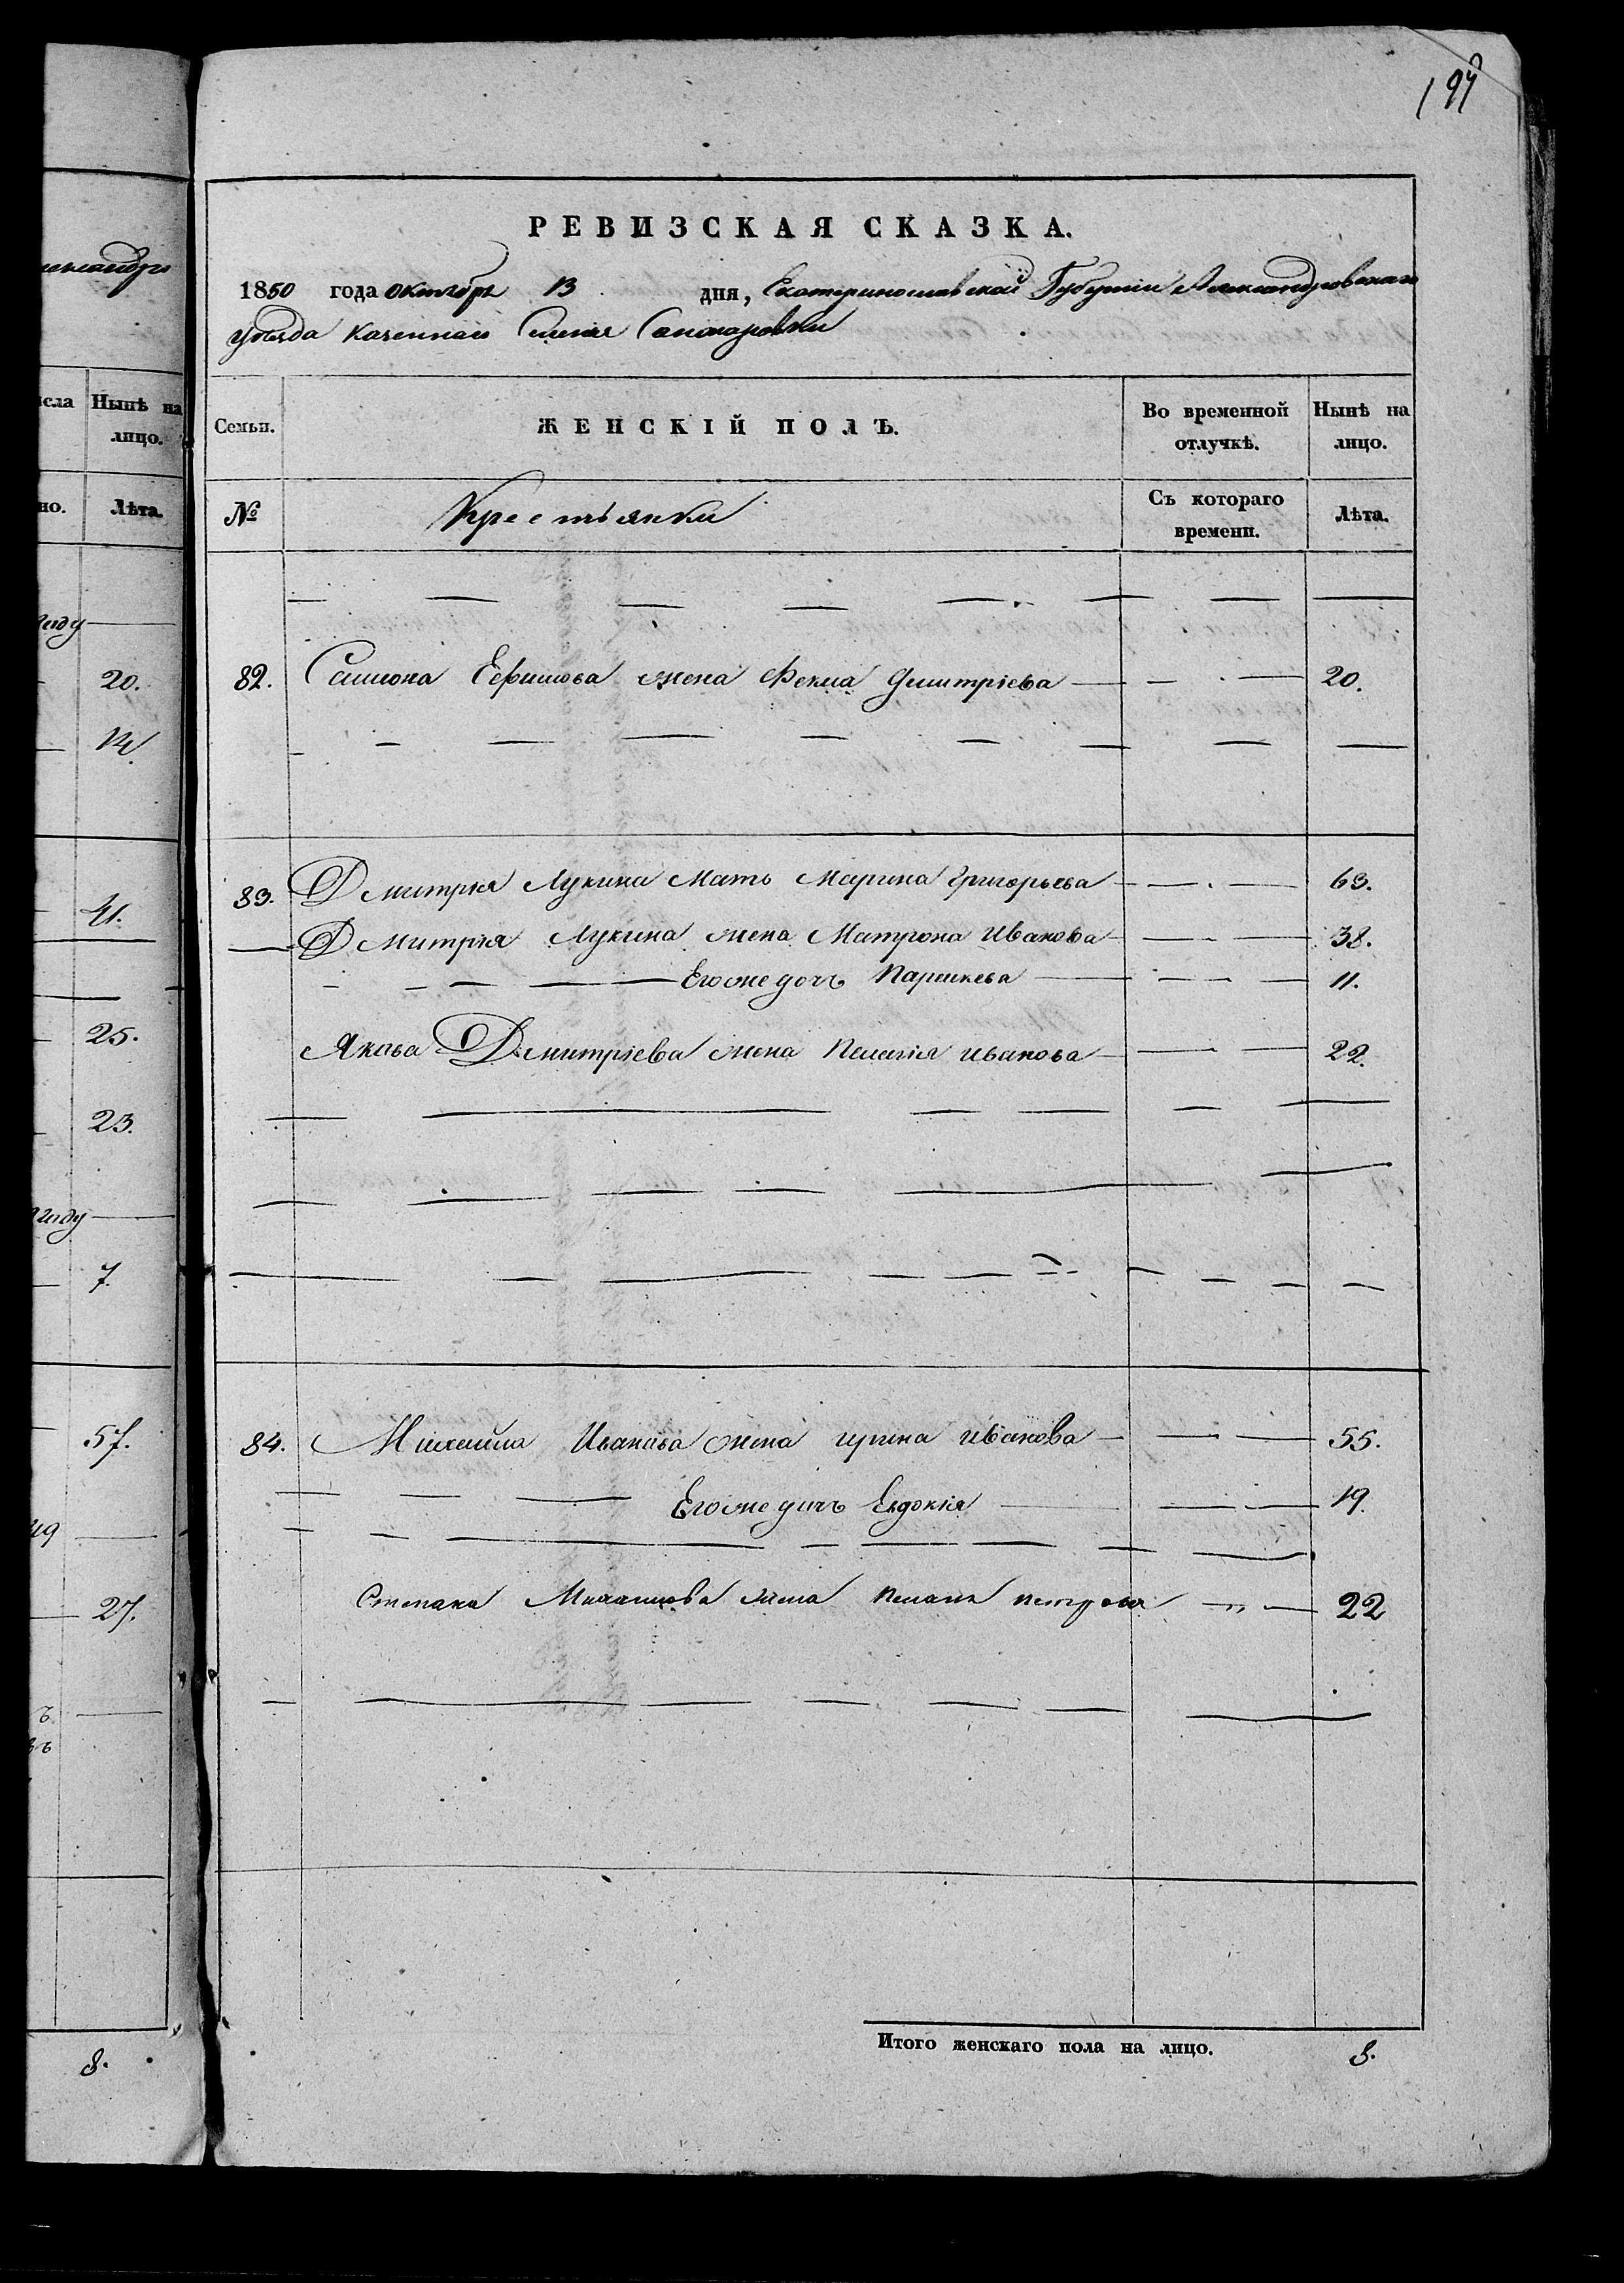 197
РЕВИЗСКАЯ СКАЗКА.
1850 года октября 13 дня, Екатеринославской Губернии Александровскаго
уезда казеннаго Селения
Семьи. ЖЕНСКІЙ ПОЛЪ. Во временной отлучкѣ. Нынѣ на лицо.
№ Крестьянки Съ котораго времени. Лѣта.
82. Симона Ефимова жена Фекла Дмитріева 20.
83. Дмитрія Лукина мать Марина Григорьева 63.
Дмитрія Лукина жена Матрона Иванова 38.
Его же дочь Параскева 11.
Якова Дмитріева жена Пелагія Иванова 22.
84. Михаила Иванова жена Ирина Иванова 55.
Его же дочь Евдокія 19.
Степана Михайлова жена Пелагия Петрова 22
Итого женскаго пола на лицо. 8.
Нынѣ на лицо.
Лѣта.
году
20.
14.
41.
25.
23.
году
7.
57.
27.
8.